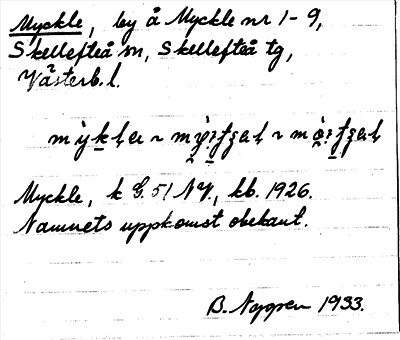 Myckle, by å Myckle nr 1-9,
Skellefteå sn, Skellefteå tg,
Västerb. l.
Myckle, k G. 51 NV, kb. 1926.
Namnets uppkomst obekant.
B. 1933.